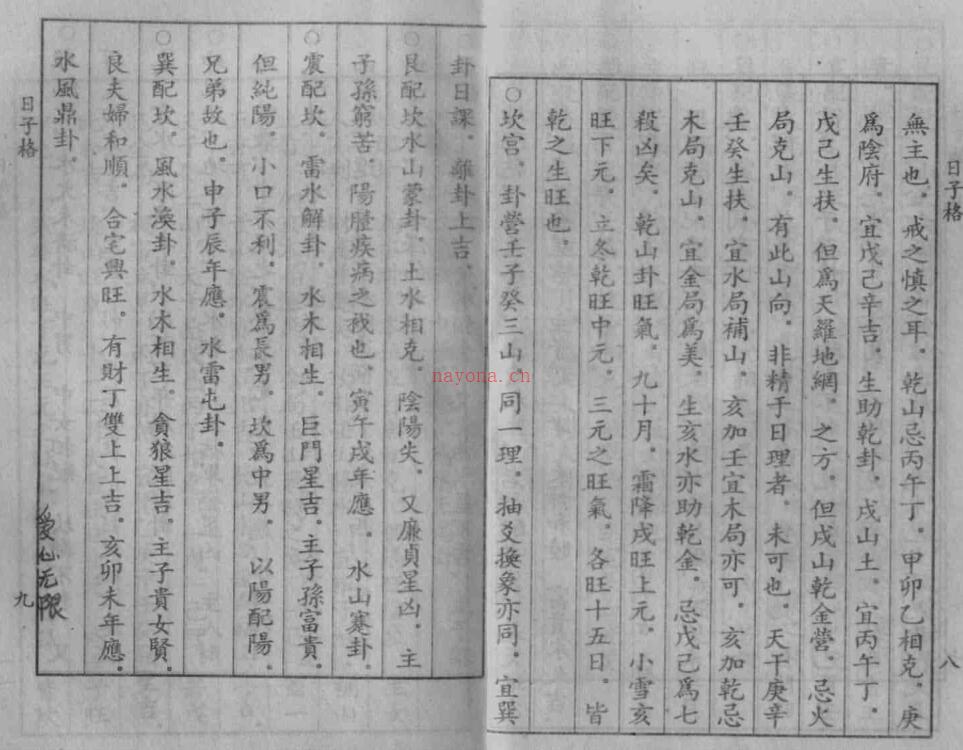 日子格
無主也．戒之慎之耳．乾山忌丙午丁．甲卯乙相克．庚
為陰府．宜戊己辛吉．生助乾卦．戌山土．宜丙午丁．
戊己生扶．但為天羅地網．之方．但戌山乾金營．忌火
局克山．有此山向．非精于日理者．未可也．天干庚辛
壬癸生扶．宜水局補山．亥加壬宜木局亦可．亥加乾忌
木局克山．宜金局為美．生亥水亦助乾金．忌戊己為七
殺凶矣．乾山卦旺氣．九十月．霜降戌旺上元．小雪亥
旺下元．立冬乾旺中元．三元之旺氣．各旺十五日．皆
乾之生旺也．
○坎宮．卦營壬子癸三山．同一理．抽爻換象亦同．宜巽
八
卦日課．離卦上吉．
○艮配坎水山蒙卦．土水相克．陰陽失．又廉貞星凶．主
子孫窮苦．陽膛疾病之我也．寅午戌年應．水山蹇卦．
○震配坎．雷水解卦．水木相生．巨門星吉．主子孫富貴．
但純陽．小口不利．震為長男．坎為中男．以陽配陽．
兄弟故也．申子辰年應．水雷屯卦．
○巽配坎．風水渙卦．水木相生．貪狼星吉．主子貴女賢．
良夫婦和順．合宅興旺．有財丁雙上上吉．亥卯未年應．
水風鼎卦．
日子格
九
愛心无限
nayona.cn